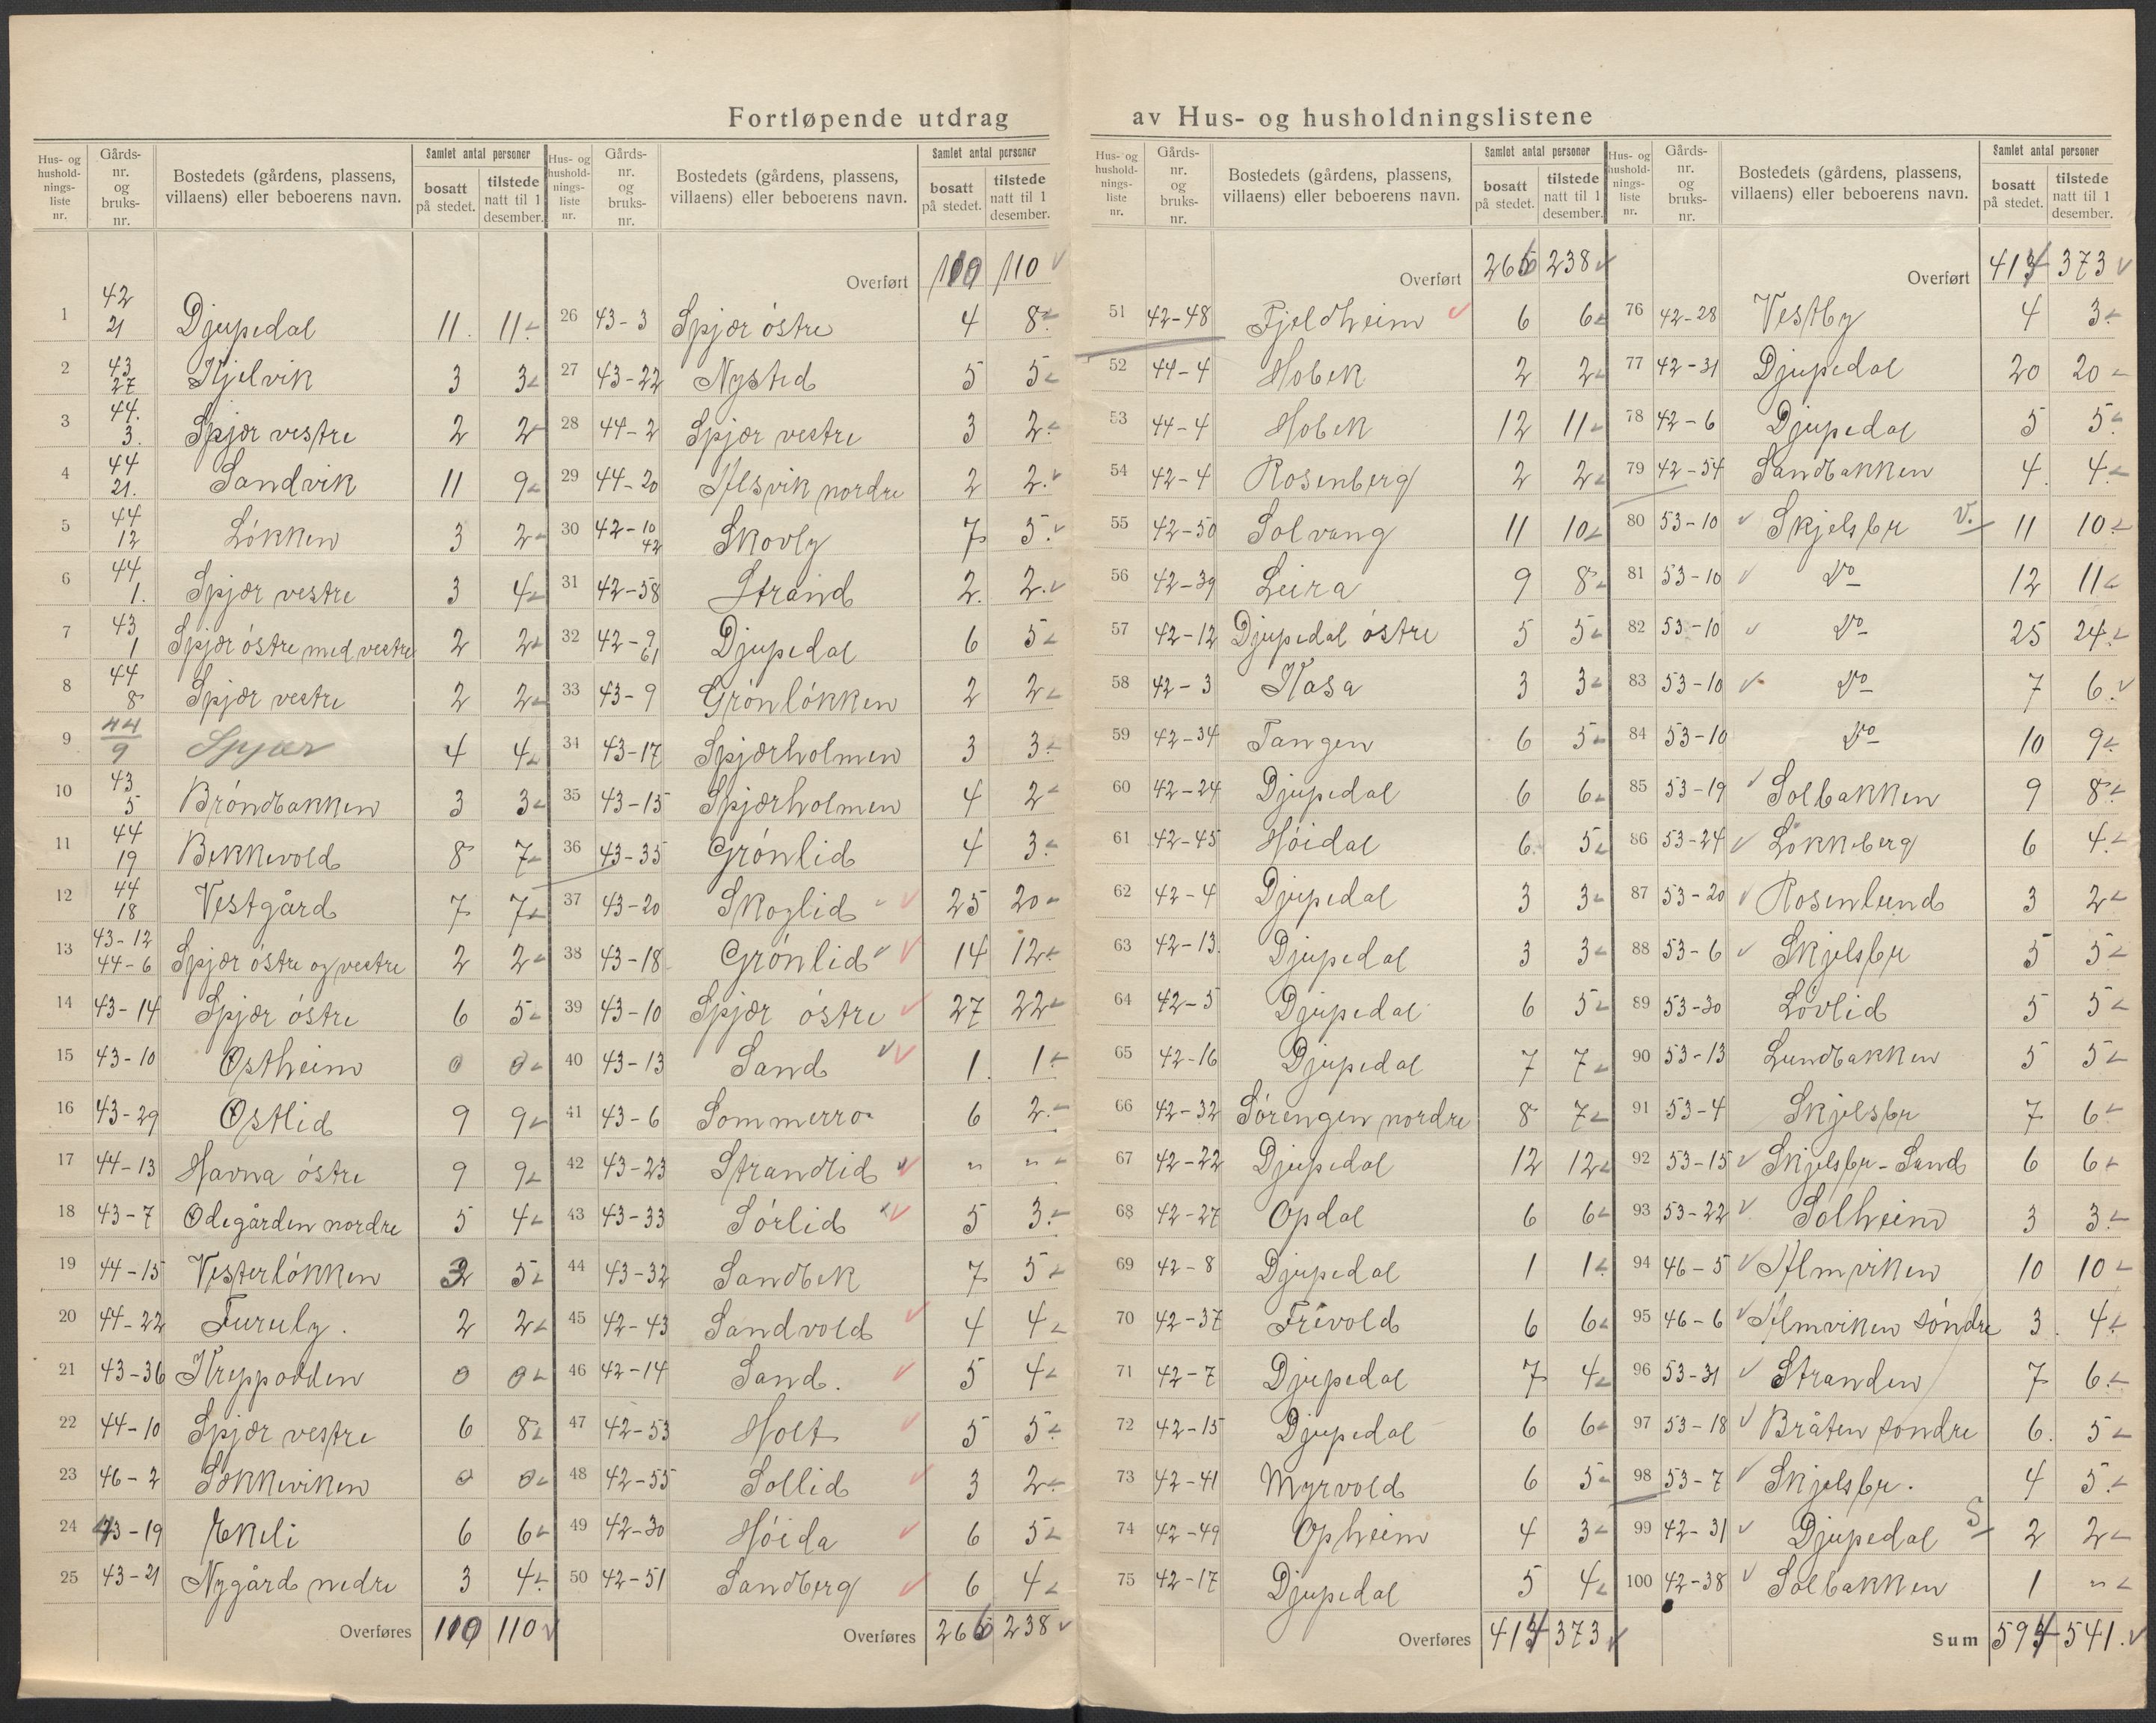 Fortløpende utdrag av Hus- og husholdningslistene
Hus- og husholdningsliste nr. | Gårds-nr. og bruks-nr. | Bostedets (gårdens, plassens, villaens) eller beboerens navn. | Samlet antal personer bosatt på stedet. | tilstede natt til 1 desember.
1 42 21 Djupedal 11. 11.
2 43 27 Kjelvik 3 3
3 44. 3. Spjær vestre 2 2
4 44 21. Sandvik 11 9
5 44 12 Løkken 3 2
6 44 1. Spjær vestre 3 4
7 43 1 Spjær östre med vestre 2 2
8 44 8 Spjær vestre 2 2
9 44 9 Spjær 4 4
10 43 5 Bröndbakken 3 3
11 44 19 Bekkevold 8 7
12 44 18 Vestgård 7 7
13 43-12 44-6 Spjær östre og vestre 2 2
14 43-14 Spjær östre 6 5
15 43-10 Østheim 0 0
16 43-29 Østlid 9 9
17 44-13 Havna östre 9 9
18 43-7 Ødegården nordre 5 4
19 44-15 Vesterlökken 3 5
20 44-22 Furuly. 2 2
21 43-36 Kreppodden 0 0
22 44-10 Spjær vestre 6 8
23 46-2 Søkkeviken 0 0
24 43-19 Ekeli 6 6
25 43-21 Nygård nedre 3 4
Overføres 110 110
Hus- og husholdningsliste nr. | Gårds-nr. og bruks-nr. | Bostedets (gårdens, plassens, villaens) eller beboerens navn. | Samlet antal personer bosatt på stedet. | tilstede natt til 1 desember.
Overført 110 110
26 43-3 Spjær östre 4 8
27 43-22 Nysted 5 5
28 44-2 Spjær vestre 3 2
29 44-20 nordre 2 2.
30 42-10 42 Skovly 7 5
31 42-58 Strand 2. 2.
32 42-9 61 Djupedal 6 5
33 43-9 Grönlökken 2 2
34 43-17 Spjærholmen 3 3
35 43-15 Spjærholmen 4 2
36 43-35 Grönlid 4 3
37 43-20 Skoglid 25 20
38 43-18 Grönlid 14 12
39 43-10 Spjær östre 27 22
40 43-13 Sand 1. 1
41 43-6 Sommerro 6 2
42 43-23 Strandlid " "
43 43-33 Sörlid 5 3
44 43-32 Sandbek 7 5
45 42-43 Sandvold 4 4
46 42-14 Sand. 5 4
47 42-53 Holt 5 5
48 42-55 Sollid 3 2
49 42-30 Höida 6 5
50 42-51 Sandberg 6 4
Overføres 266 238
Hus- og husholdningsliste nr. | Gårds-nr. og bruks-nr. | Bostedets (gårdens, plassens, villaens) eller beboerens navn. | Samlet antal personer bosatt på stedet. | tilstede natt til 1 desember.
Overført 266 238
51 42-48 Fjeldheim 6 6
52 44-4 Hobek 2 2
53 44-4 Hobek 12 11
54 42-4 Rosenberg 2 2
55 42-50 Solvang 11 10
56 42-39 Leira 9 8
57 42-12 Djupedal östre 5 5
58 42-3 Kasa 3 3
59 42-34 Tangen 6 5
60 42-24 Djupedal 6 6
61 42-45 Höidal 6. 5
62 42-4 Djupedal 3 3
63 42-13. Djupedal 3 3
64 42-5 Djupedal 6 5
65 42-16 Djupedal 7 7
66 42-32 Sörengen nordre 8 7
67 42-22 Djupedal 12 12
68 42-27 Opdal 6 6
69 42-8 Djupedal 1 1
70 42-37 Frivold 6 6
71 42-7 Djupedal 7 4
72 42-15 Djupedal 6 6
73 42-41 Myrvold 6 5
74 42-49 Opheim 4 3
75 42-17 Djupedal 5 4
Overføres 414 373
Hus- og husholdningsliste nr. | Gårds-nr. og bruks-nr. | Bostedets (gårdens, plassens, villaens) eller beboerens navn. | Samlet antal personer bosatt på stedet. | tilstede natt til 1 desember.
Overført 414 373
76 42-28 Vestby 4 3
77 42-31 Djupedal 20 20
78 42-6 Djupedal 5 5
79 42-54 Sandbakken 4. 4
80 53-10 Skjelsbu V. 11 10
81 53-10 Do 12 11
82 53-10 Do 25 24
83 53-10 Do 7 6
84 53-10 Do 10 9
85 53-19 Solbakken 9 8
86 53-24 Lökkeberg 6 4
87 53-20 Rosenlund 3 2
88 53-6 Skjelsbu 5 5
89 53-30 Lövlid 5 5
90 53-13 Lundbakken 5 5
91 53-4 Skjelsbu 7 6
92 53-15 Skjelsbu-Sund 6 6
93 53-22 Solheim 3 3
94 46-5 Almviken 10 10
95 46-6 Almviken söndre 3. 4
96 53-31 Stranden 7 6
97 53-18 Bråten söndre 6. 5
98 53-7 Skjelsbu. 4 5
99 42-31 Djupedal S 2 2
100 42-38 Solbakken 1 "
Sum 594 541.